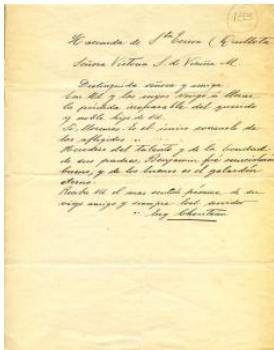 Hacienda de Sta Teresa (Quillota
Señora Victoria S. de Vicuña M.
Distinguida señora y amiga
Con Ud. y los suyos vengo a llorar
la pérdida irreparable del querido
y noble hijo de Ud.
Si, lloremos. Es el único consuelo de
los aflijidos.
Heredero del talento y de la bondad
de sus padres, Benjamin fué
bueno, y de los buenos es el galardón
eterno.
Reciba Ud el mas sentido pésame de su
viejo amigo y siempre leal servidor
Eug Chouteau